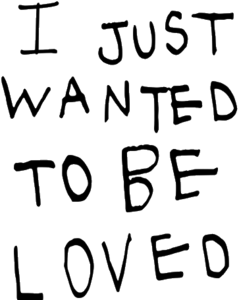 I JUST
WANTED
TO BE
LOVED